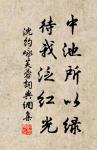 中池所以绿
待我泛红光
沈约咏芙蓉词典网集